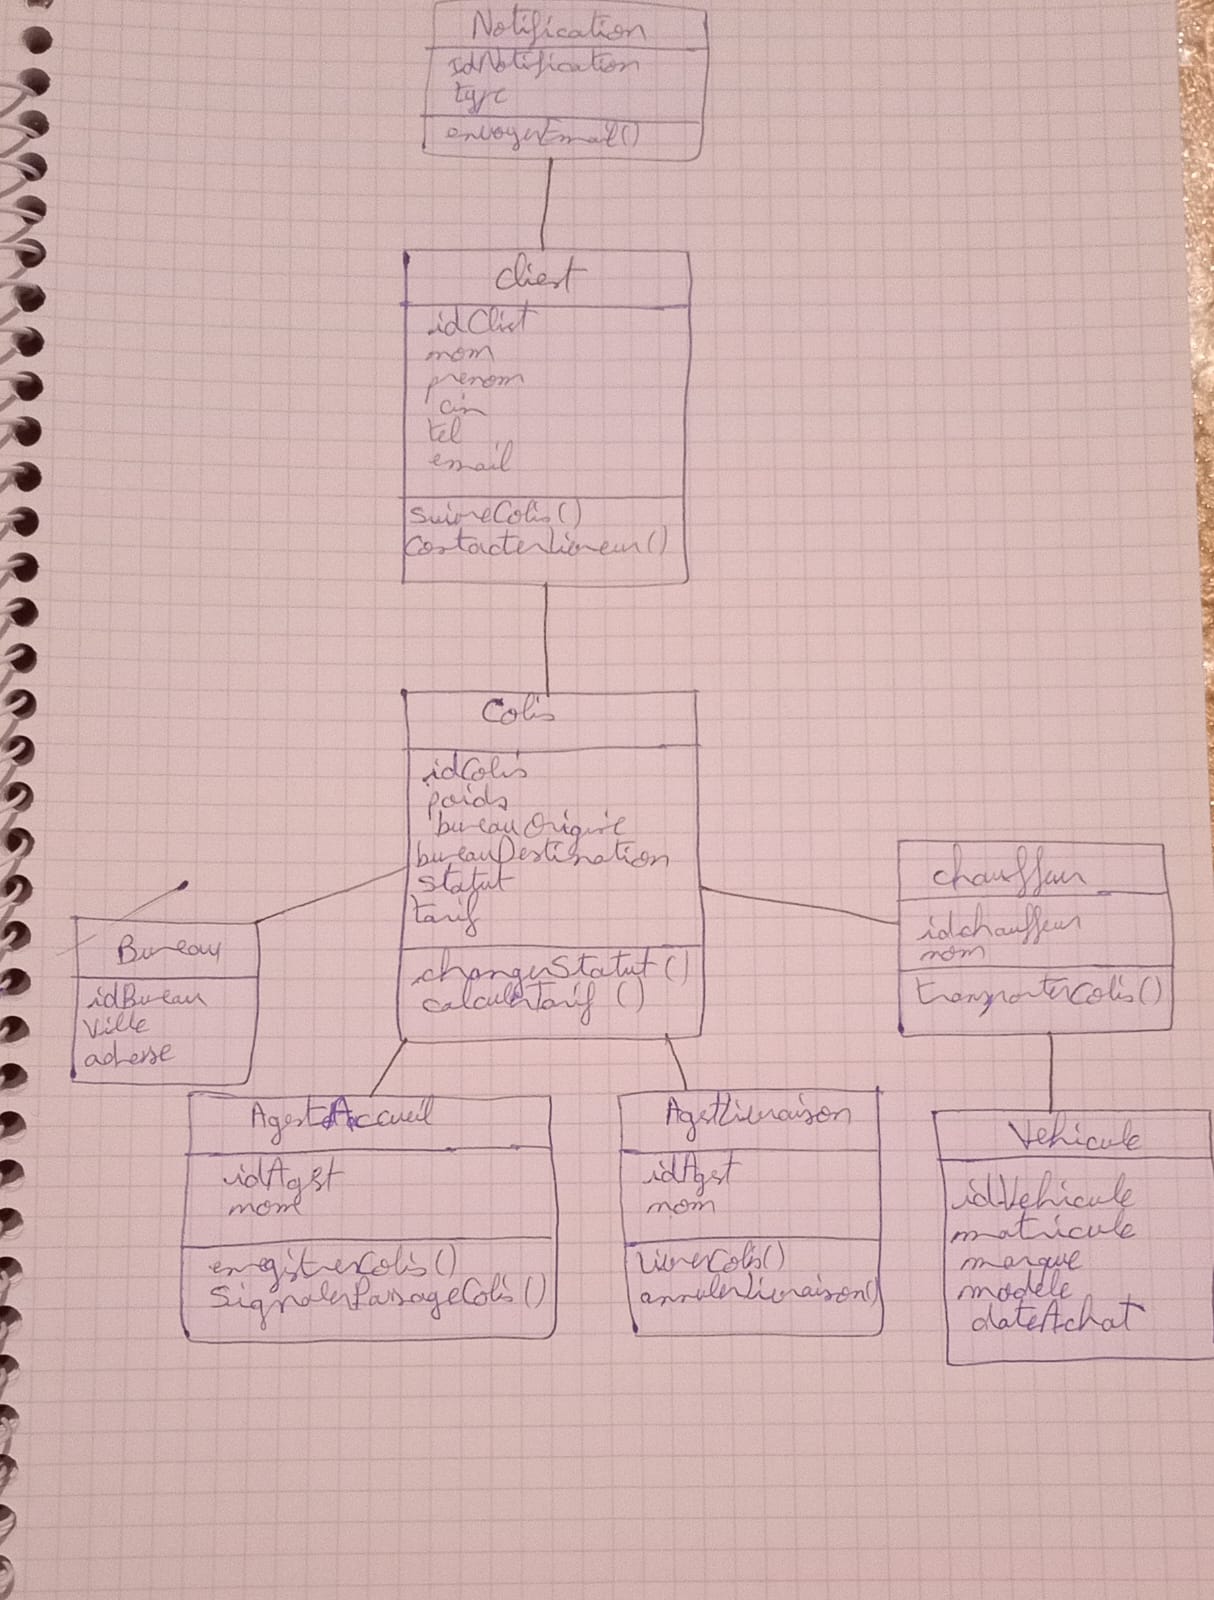 Notification
idNotification
type
envoyerEmail()
Client
idClient
nom
prenom
cin
tel
email
suivreColis()
contacterLivreur()
Colis
idColis
poids
bureauOrigine
bureauDestination
statut
tarif
changerStatut()
calculerTarif ()
Bureau
idBureau
Ville
adresse
chauffeur
idchauffeur
nom
transporterColis()
AgentdAccueil
idAgent
nom
enregistrerColis()
SignalerPassageColis()
AgentLivraison
idAgent
nom
livrerColis()
annulerLivraison()
Vehicule
idVehicule
matricule
marque
modele
dateAchat